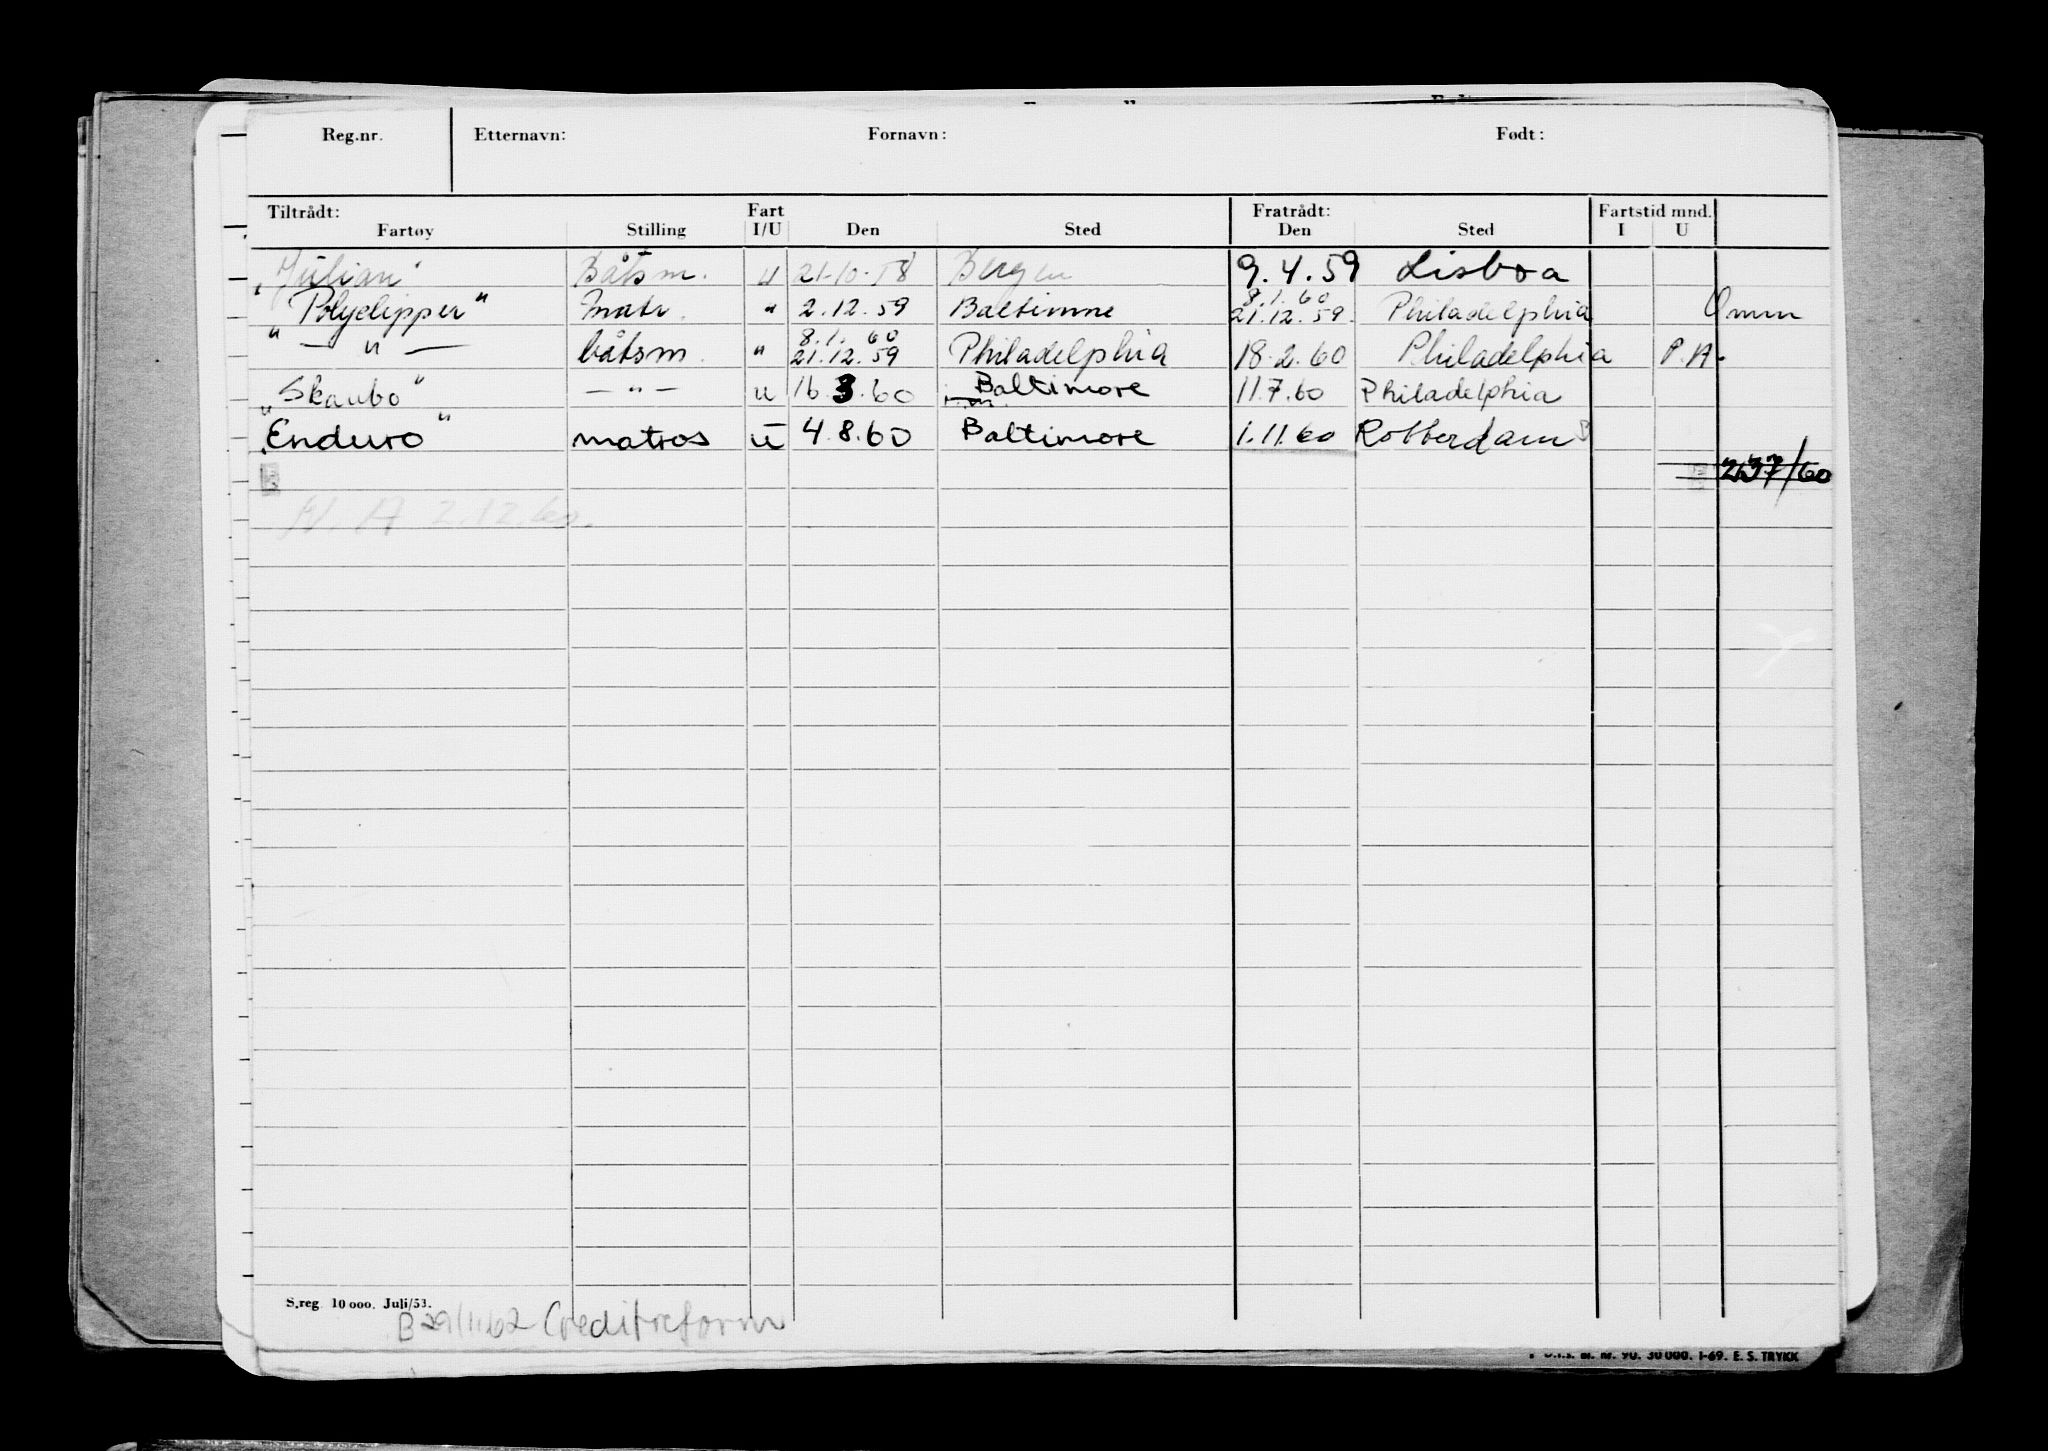 Reg.nr. Etternavn: Fornavn: Født:
Tiltrådt: Fart Fratrådt: Fartstid mnd.
Fartøy Stilling I/U Den Sted Den Sted I U
"Julian" Båtsm. u 21-10-58 Bergen 9.4.59 Lisboa
"Polyclipper" matr. " 2.12.59 Baltimore 8.1.60 21.12.59. Philadelphia Omm
— " — båtsm. " 8.1.60 21.12.59 Philadelphia 18.2.60 Philadelphia P.A.
"Skaubo" — " — u 16.3.60 Baltimore 11.7.60 Philadelphia
"Enduro" matros u 4.8.60 Baltimore 1.11.60 Rotterdam
237/60
2.12.60.
S.reg. 10 000. Juli/53.
B 29/11.62 Creditreform
90. 30 000. 1-69. E. S. TRYKK